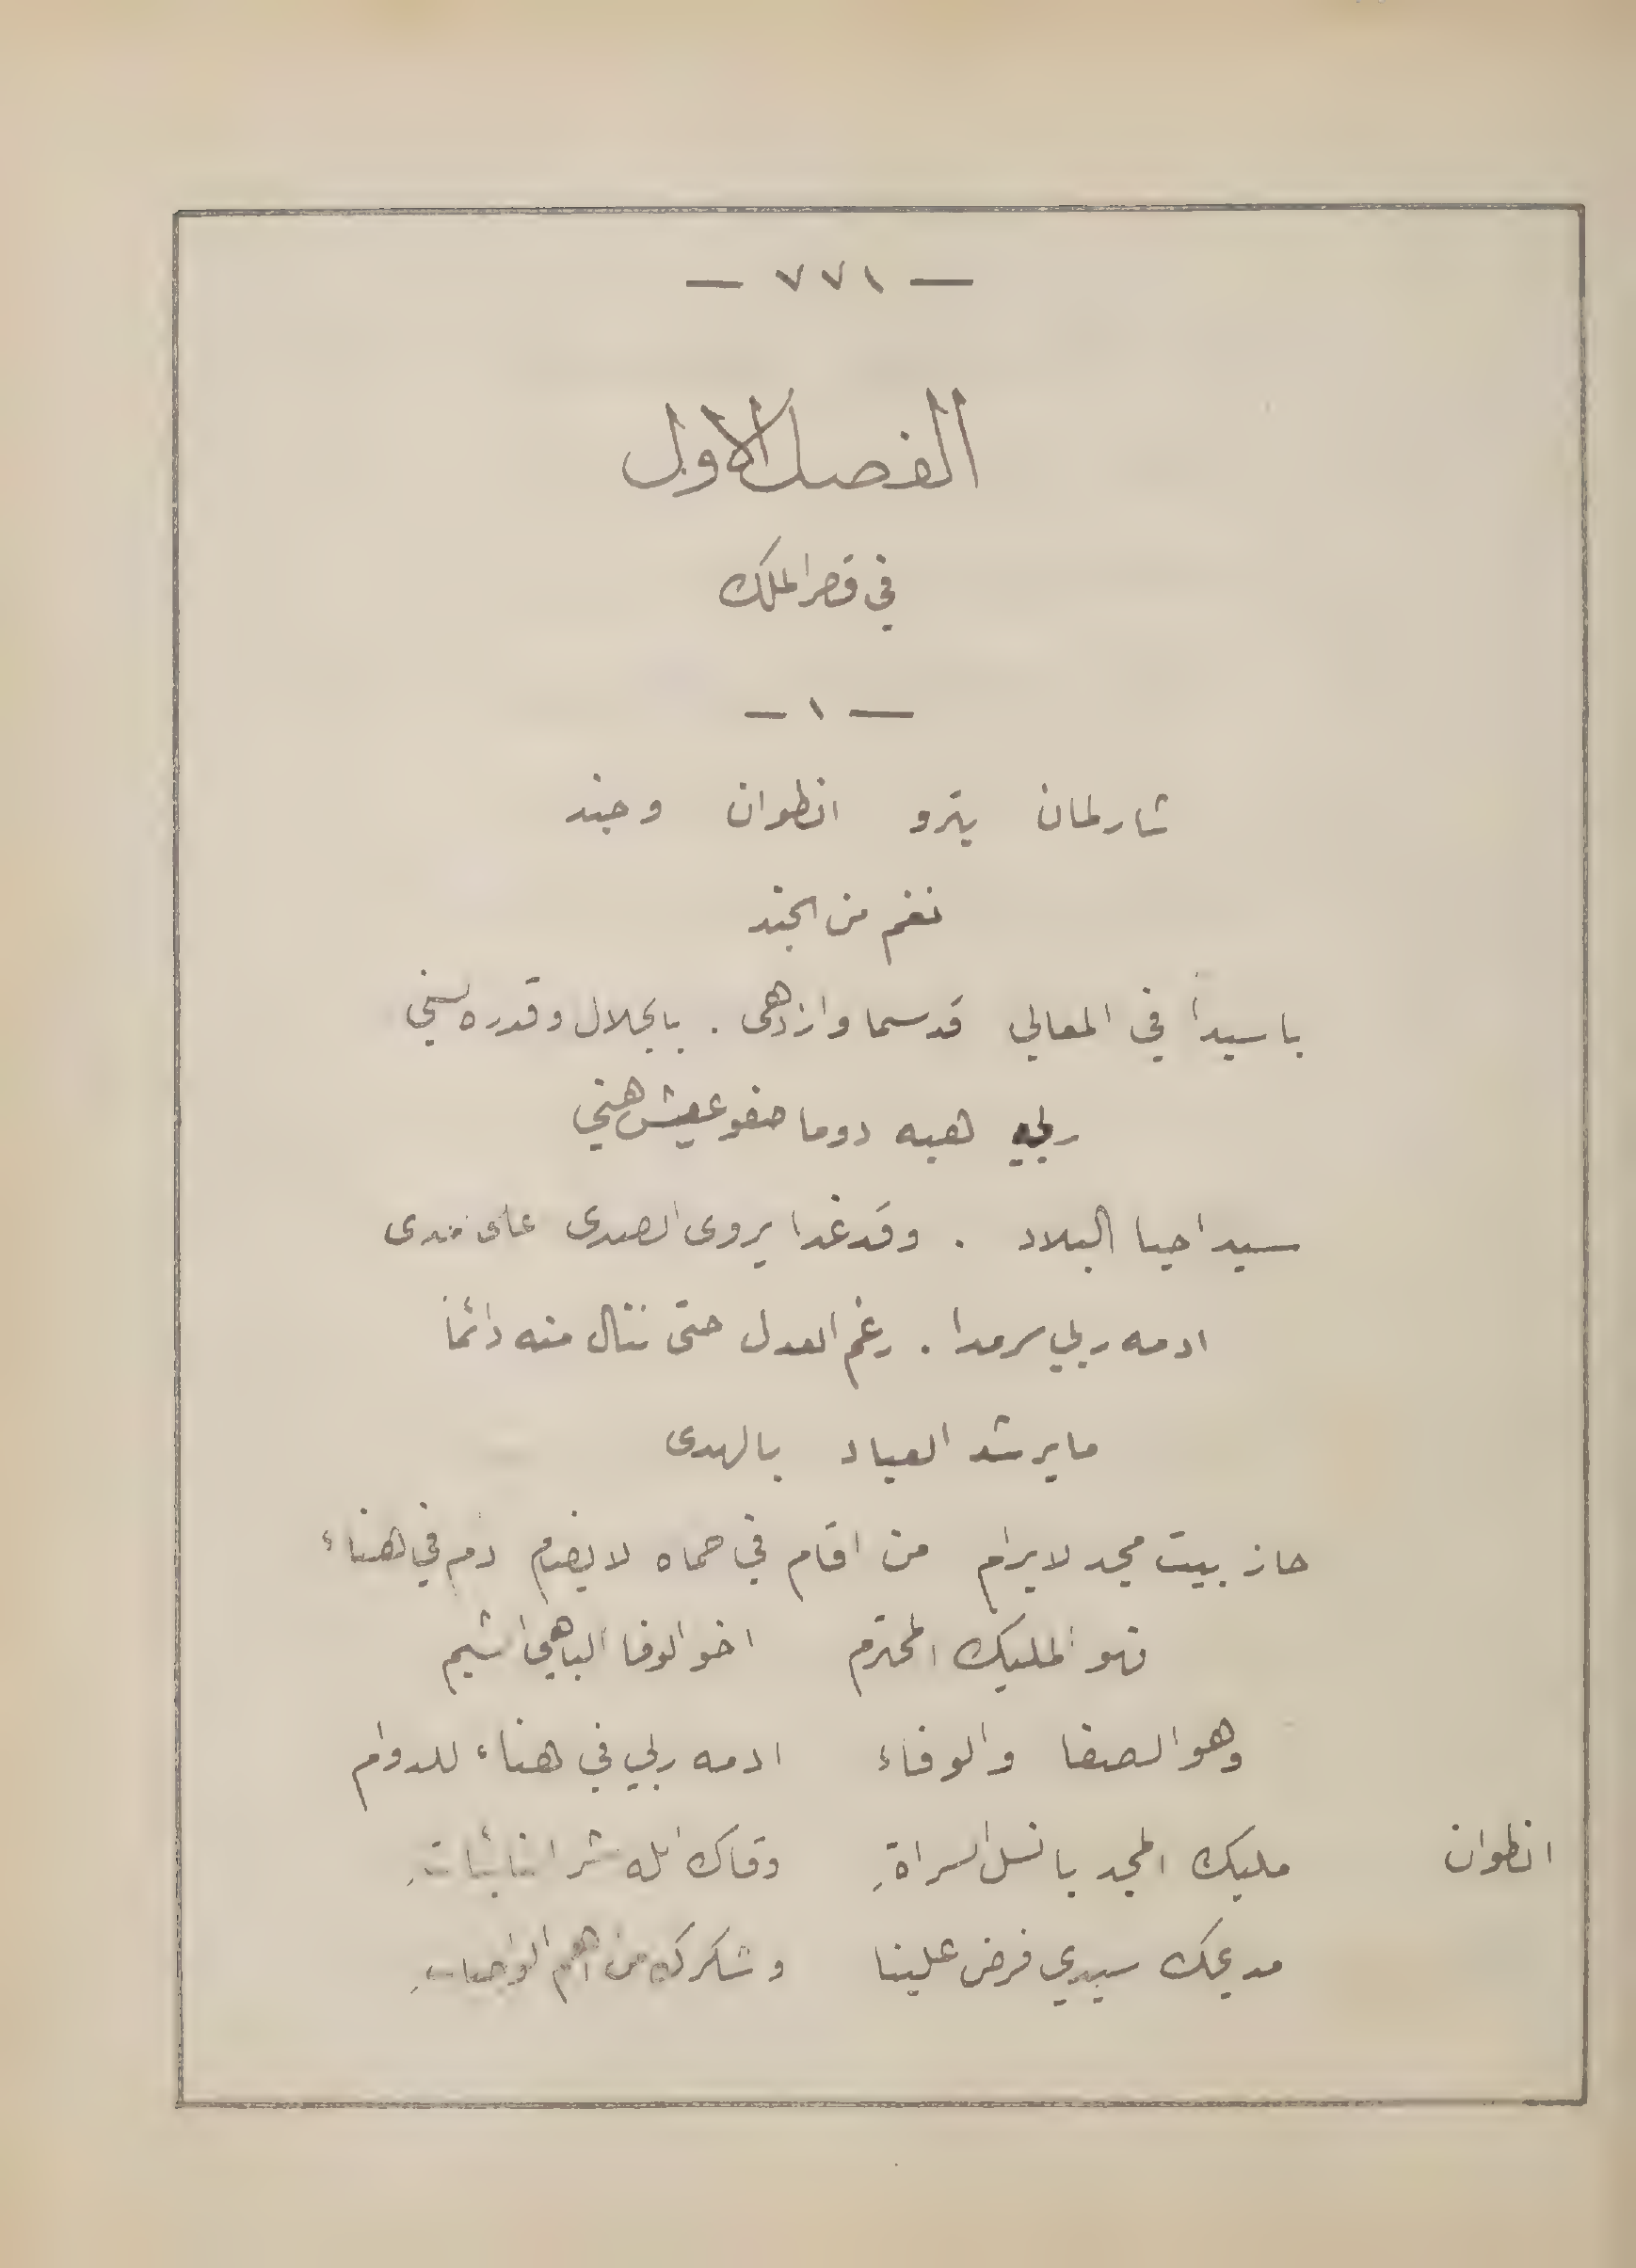 — ٧٧١ —
الفصل الاول
في قصر الملك
— ١ —
شارلمان يترو انطوان وجند
نغم من الجند
يا سيداً في المعالي قد سما وازدهى . بالجلال وقدره السني
ربي هبه دوما صفو عيش هني
سيد احيا البلاد . وقد غدا يروى الصدى
ادمه ربي سرمدا . رغم العدل حتى ننال منه دائماً
ما يرشد العباد بالهدى
حاز بيت مجد لا يرام من اقام في حماه لا يضام دم في هناء
فهو المليك المحترم اخو الوفا الباهي الشيم
وهو الصفا والوفاء ادمه ربي في هناء للدوام
انطوان مليك المجد يا نسل السراةِ وقاك الله شر النائباتِ
مديحك سيدي فرض علينا وشكرك من اهم الواجباتِ